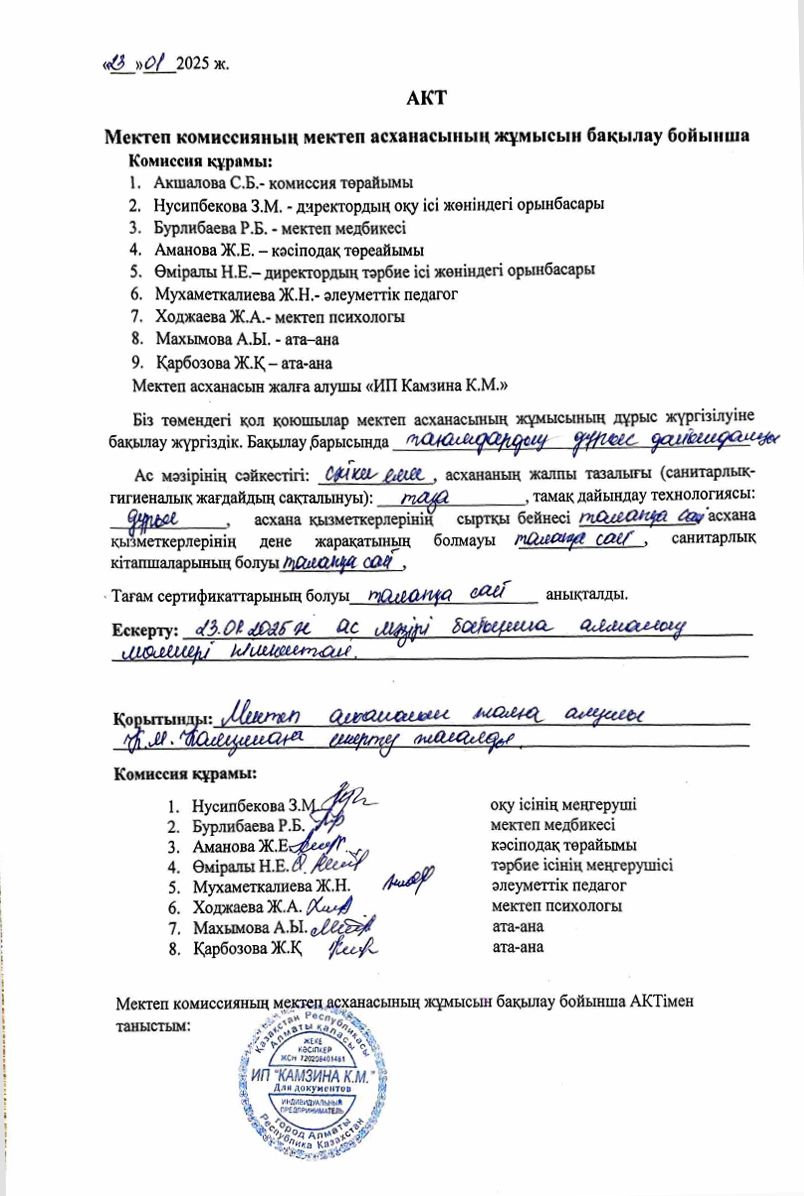 «23»01 2025 ж.
АКТ
Мектеп комиссияның мектеп асханасының жұмысын бақылау бойынша
Комиссия құрамы:
1. Акшалова С.Б.- комиссия төрайымы
2. Нусипбекова З.М. - директордың оқу ісі жөніндегі орынбасары
3. Бурлибаева Р.Б. - мектеп медбикесі
4. Аманова Ж.Е. – кәсіподақ төреайымы
5. Өміралы Н.Е.– директордың тәрбие ісі жөніндегі орынбасары
6. Мухаметкалиева Ж.Н.- әлеуметтік педагог
7. Ходжаева Ж.А.- мектеп психологы
8. Махымова А.Ы. - ата–ана
9. Қарбозова Ж.Қ – ата-ана
Мектеп асханасын жалға алушы «ИП Камзина К.М.»
Біз төмендегі қол қоюшылар мектеп асханасының жұмысының дұрыс жүргізілуіне
бақылау жүргіздік. Бақылау барысында тағамдардың дұрыс дайындалуы
Ас мәзірінің сәйкестігі: сәйкес емес, асхананың жалпы тазалығы (санитарлық-
гигиеналық жағдайдың сақталынуы): таза, тамақ дайындау технологиясы:
дұрыс, асхана қызметкерлерінің сыртқы бейнесі талапқа сай асхана
қызметкерлерінің дене жарақатының болмауы талапқа сай, санитарлық
кітапшаларының болуы талапқа сай,
Тағам сертификаттарының болуы талапқа сай анықталды.
Ескерту: 23.01.2025 ж ас мәзірі бойынша алманың
мөлшері
Қорытынды: Мектеп асханасын жалға алушы
К.М. Камзинаға ескерту жасалды.
Комиссия құрамы:
1. Нусипбекова З.М. оқу ісінің меңгеруші
2. Бурлибаева Р.Б. мектеп медбикесі
3. Аманова Ж.Е. кәсіподақ төрайымы
4. Өміралы Н.Е. тәрбие ісінің меңгерушісі
5. Мухаметкалиева Ж.Н. әлеуметтік педагог
6. Ходжаева Ж.А. мектеп психологы
7. Махымова А.Ы. ата-ана
8. Қарбозова Ж.Қ ата-ана
Мектеп комиссияның мектеп асханасының жұмысын бақылау бойынша АКТімен
таныстым:
Қазақстан Республикасы
Алматы қаласы
ЖЕКЕ
КӘСІПКЕР
ЖСН
ИП "КАМЗИНА К.М."
Для документов
ИНДИВИДУАЛЬНЫЙ
ПРЕДПРИНИМАТЕЛЬ
город Алматы
Республика Казахстан